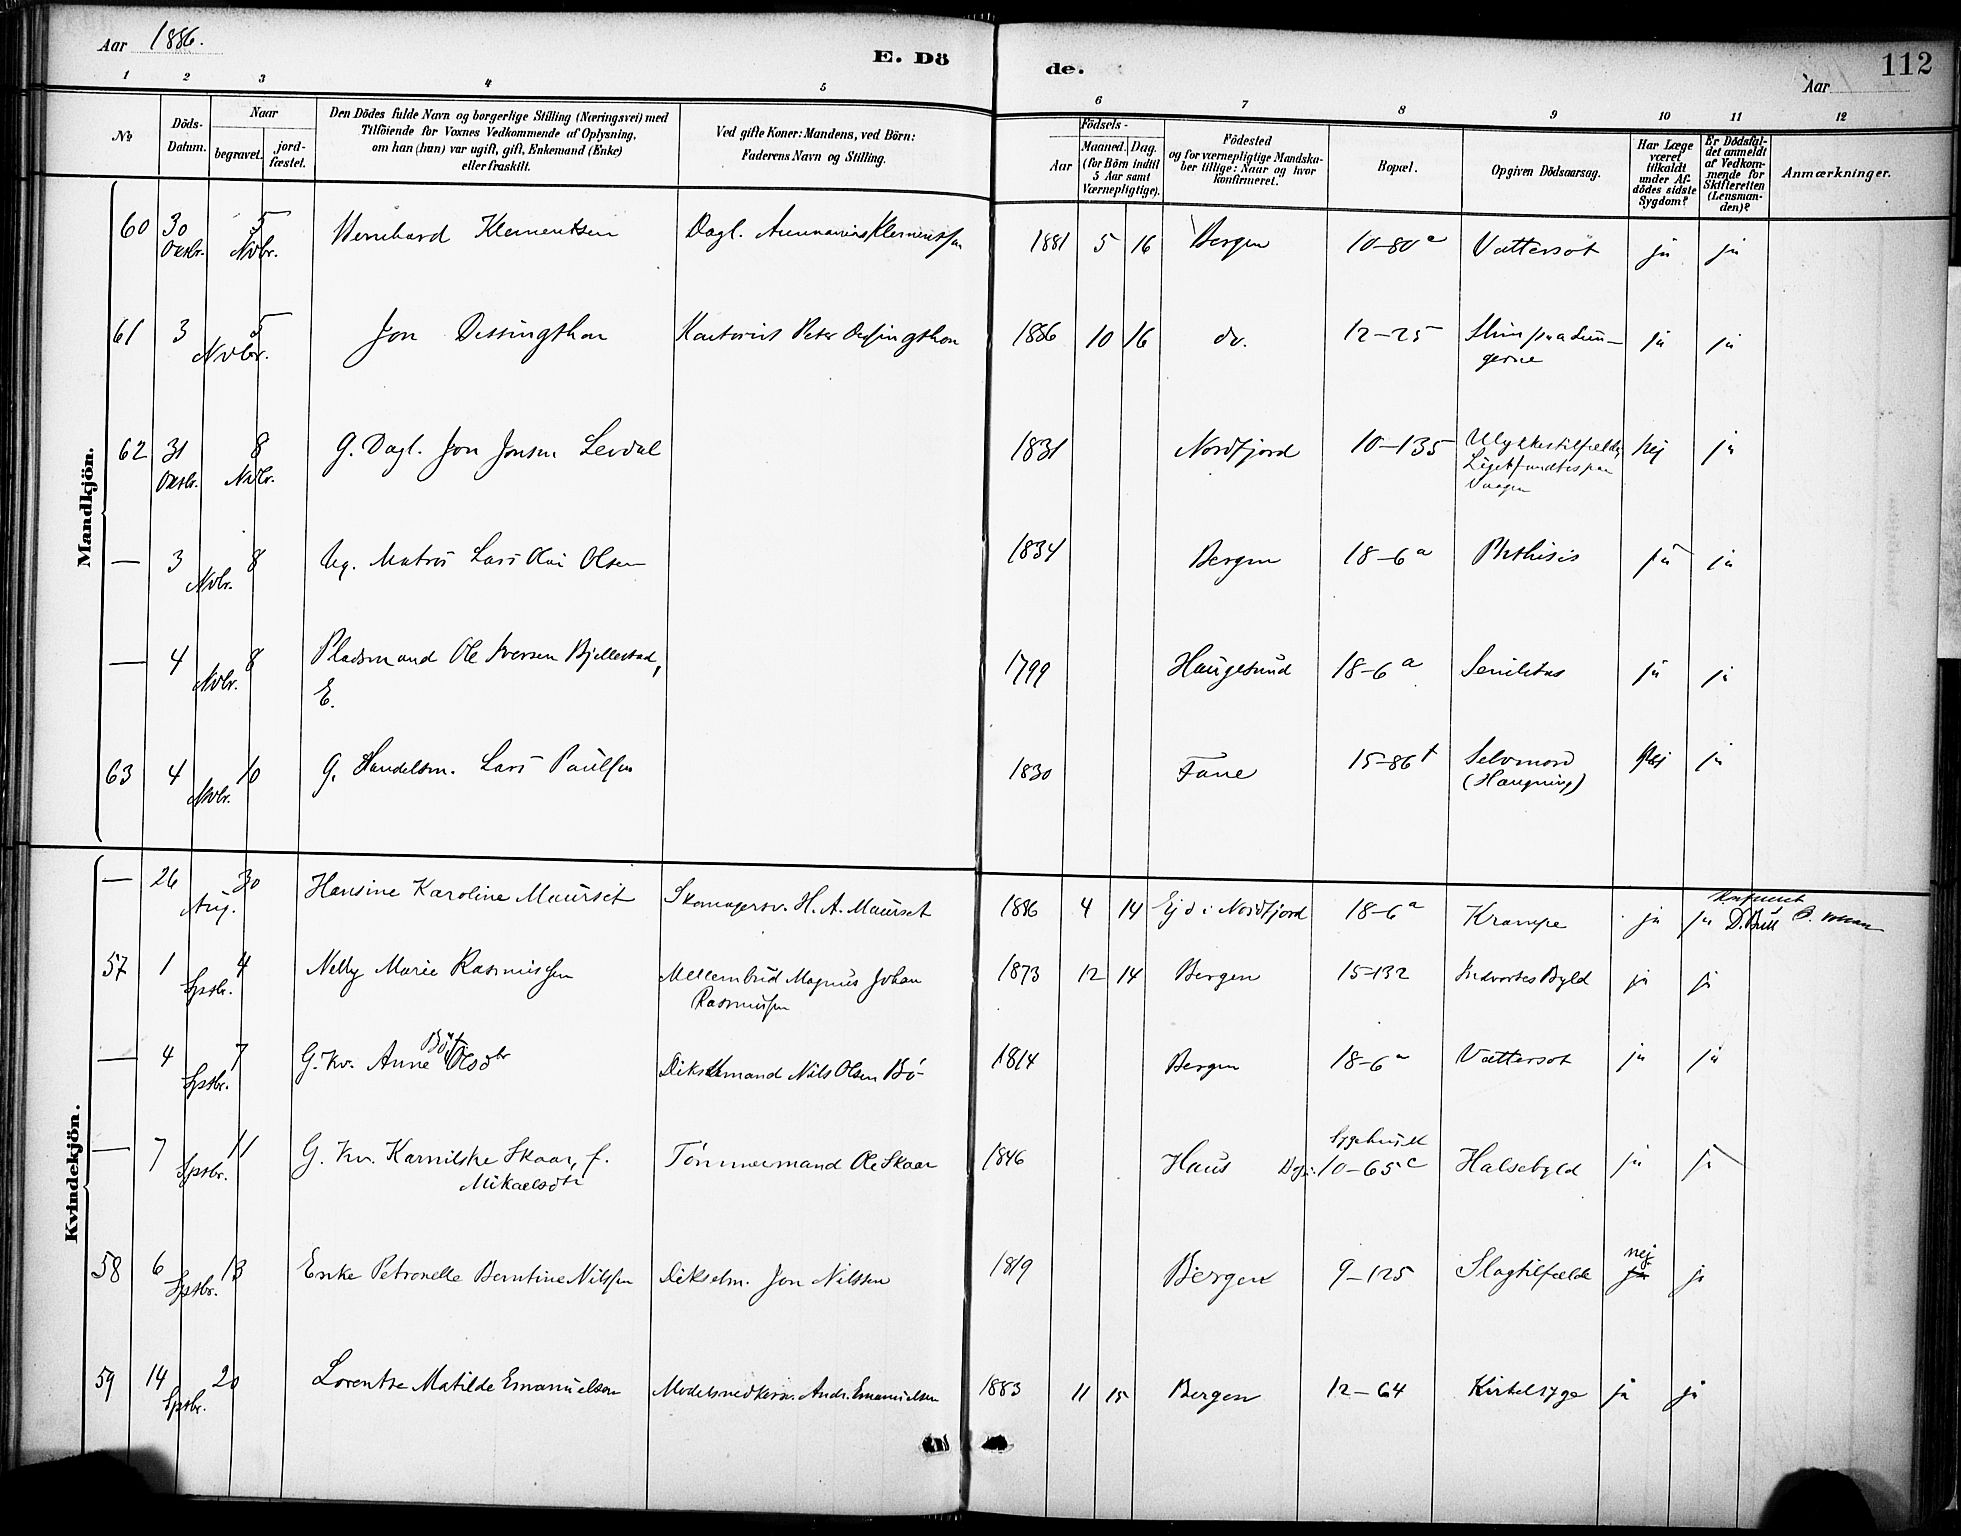 Aar 1886.
E. Dö
de.
Aar
112
1 2 3 4 5 6 7 8 9 10 11 12
№
Döds-Datum.
Naar
begravet.
jord-fæstet.
Den Dödes fulde Navn og borgerlige Stilling (Næringsvei) med
Tilföiende for Voxnes Vedkommende af Oplysning,
om han (hun) var ugift, gift, Enkemand (Enke)
eller fraskilt.
Ved gifte Koner: Mandens, ved Börn:
Faderens Navn og Stilling.
Födsels-
Aar
Maaned. Dag.
(for Börn indtil
5 Aar samt
Værnepligtige).
Födested
og for værnepligtige Mandska-
ber tillige: Naar og hvor
konfirmeret.
Bopæl.
Opgiven Dödsaarsag.
Har Læge
været
tilkaldt
under Af-
dödes sidste
Sygdom?
Er Dödsfal-
det anmeldt
af Vedkom-
mende for
Skifteretten
(Lensman-
den)?
Anmærkninger.
Mandkjön.
60 30 Oktbr. 5 Nvbr. Klementsen Dagl. 1881 5 16 Bergen 10-80 a Vattersot ja ja
61 3 Nvbr. 5 Jon Dessingthon Kontorist Peter Dessingthon 1886 10 16 do. 12-25 ja ja
62 31 Oktbr. 8 Nvbr. G. Dagl. Jon Jonsen Levdal 1831 Nordfjord 10-135 Ulykkestilfælde, Nej ja
Liget fandtes paa
Vaagen
— 3 Nvbr. 8 Ug. Matros Lars Olai Olsen 1834 Bergen 18-6 a Phthisis ja ja
— 4 Nvbr. 8 Pladsmand Ole Iversen Bjellestad, 1799 Haugesund 18-6 a Senilitas ja ja
E.
63 4 Nvbr. 10 G. Handelsm. Lars Paulsen 1830 Fane 15-86 Selvmord Nej ja
(Hængning)
Kvindekjön.
— 26 Aug. 30 Hansine Karoline Maurset Skomagersv. H. A. Maurset 1886 4 14 Ejd i Nordfjord 18-6 a Krampe ja ja
57 1 Sptbr. 4 Nelly Marie Rasmussen Mellembud Magnus Johan 1873 12 14 Bergen 15-132 Indvortes Byld ja ja
Rasmussen
— 4 Sptbr. 7 G. Kv. Anne Olsdtr Nils Olsen Bö 1814 Bergen 18-6 a Vattersot ja ja
— 7 Sptbr. 11 G. Kv. Skaar, f. Tömmermand Ole Skaar 1846 Haus Sygehuset 10-65 c Halsebyld ja ja
Mikaelsdtr
58 6 Sptbr. 13 Enke Petronelle Berntine Nilssen Dikselm. Jon Nilssen 1819 Bergen 9-125 Slagtilfælde nej ja ja
59 14 Sptbr. 20 Lorentze Matilde Emanuelsen Andr. Emanuelsen 1883 11 15 Bergen 12-64 Kirtelsyge ja ja